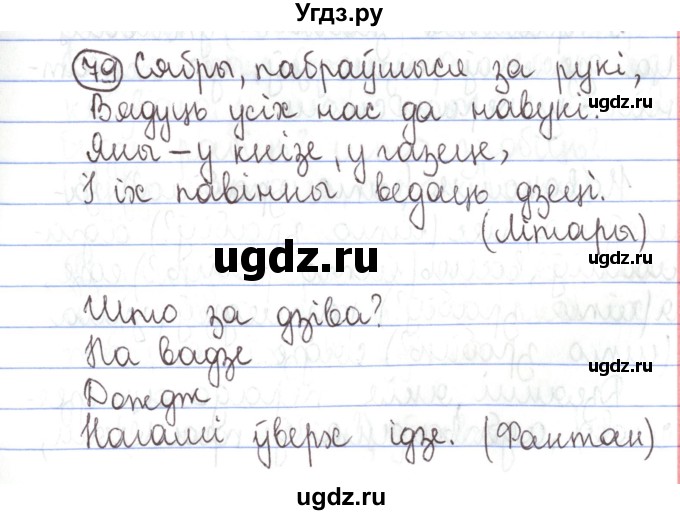 Угдз.ру
79 Сябры, пабраўшыся за рукі,
Вядуць усіх нас да навукі.
Яны – у кнізе, у газеце,
І іх павінны ведаць дзеці.
(Літары)
Што за дзіва?
На вадзе
Дождж
Нагамі ўверх ідзе. (Фантан)
ugdz.ru
ugdz.ru
ugdz.ru
ugdz.ru
ugdz.ru
ugdz.ru
ugdz.ru
ugdz.ru